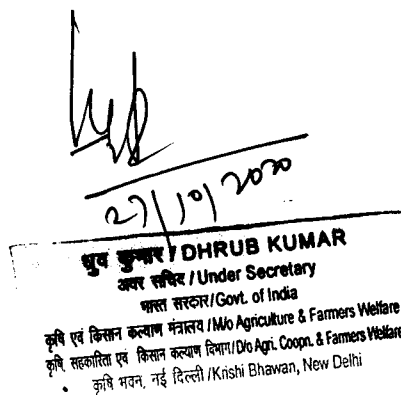 27/10/2020
ध्रुव कुमार / DHRUB KUMAR
अवर सचिव / Under Secretary
भारत सरकार/Govt. of India
कृषि एवं किसान कल्याण मंत्रालय / M/o Agriculture & Farmers Welfare
कृषि, सहकारिता एवं किसान कल्याण विभाग/D/o Agri. Coopn. & Farmers Welfare
कृषि भवन, नई दिल्ली/Krishi Bhawan, New Delhi